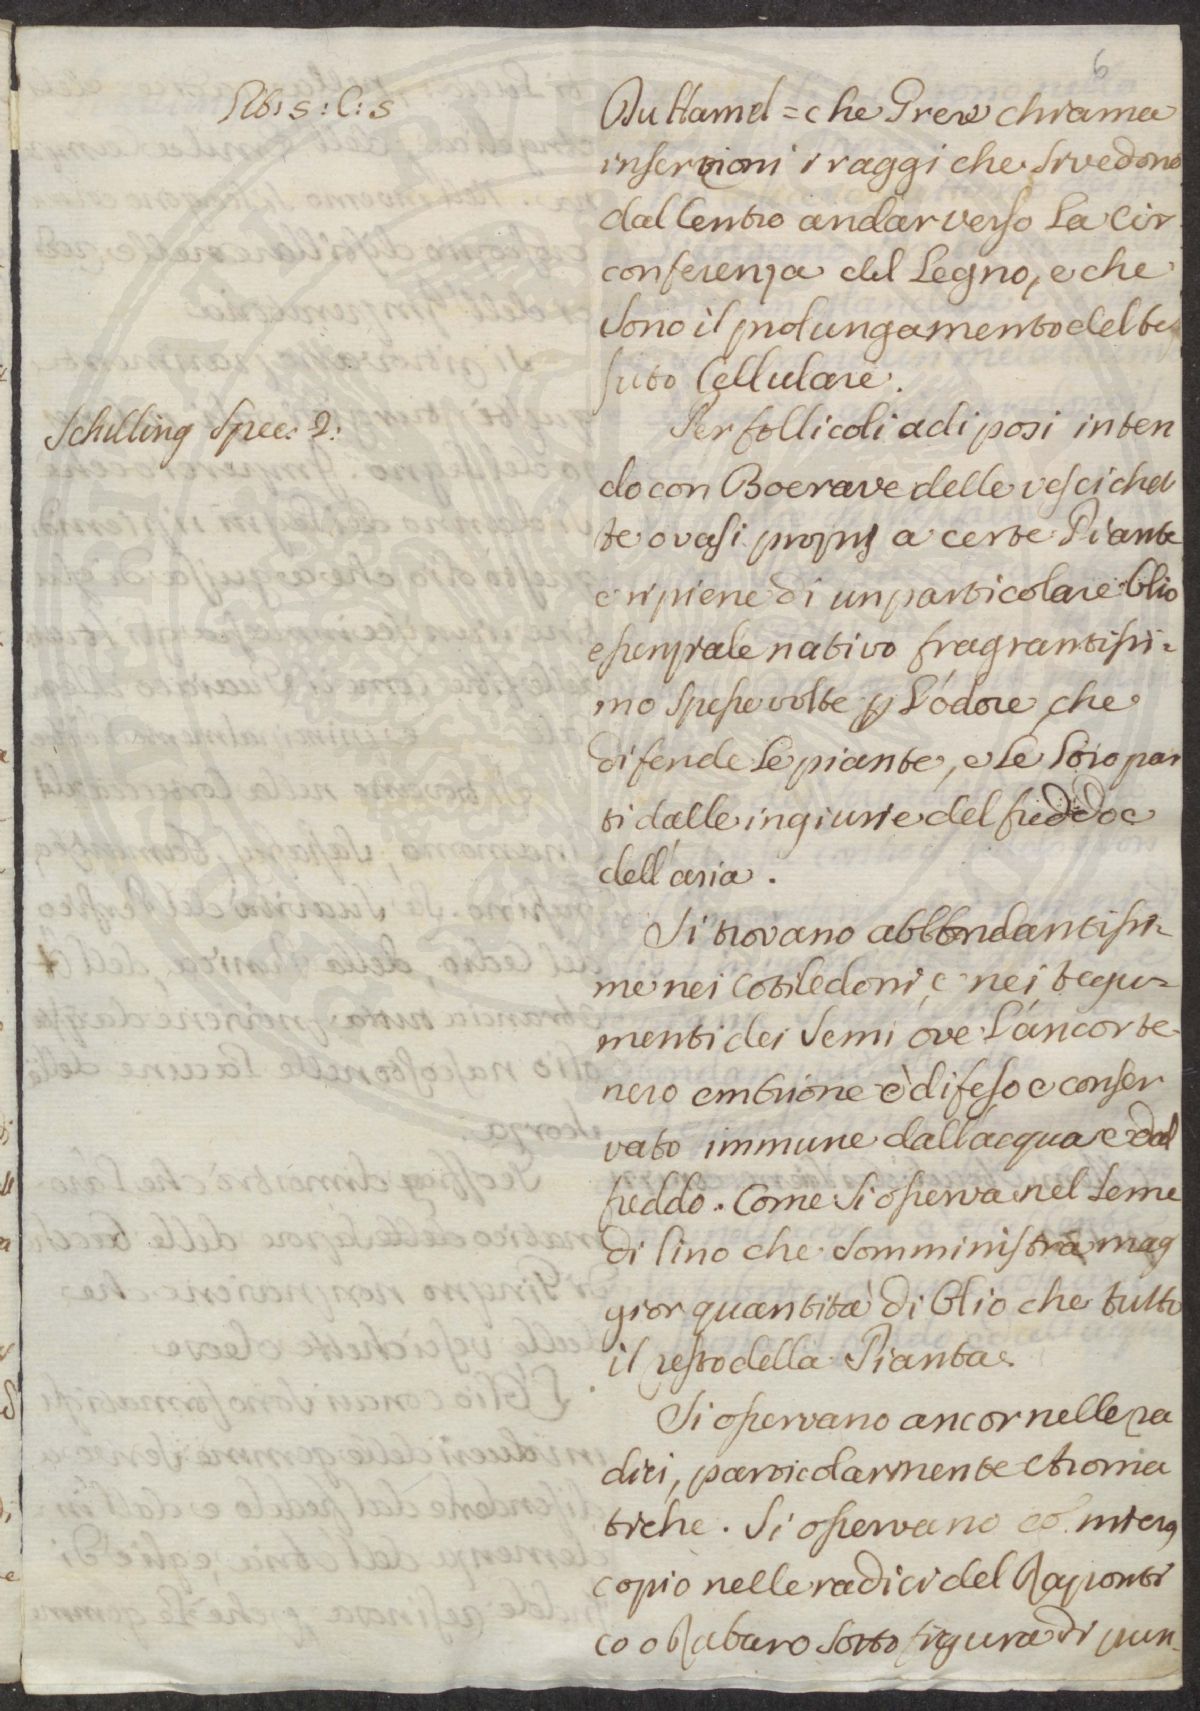 6
lib: s: C: s
Duhamel = che Grew chiama
inserzioni i raggi che si vedono
dal Centro andar verso la Cir
conferenza del Legno, e che
sono il prolungamento del tes
suto Cellulare.
Schilling Spec: 2:
Per follicoli adiposi inten
do con Boerave delle vescichet
te o vasi proprj a certe Piante
e ripiene di un particolare Olio
essenziale nativo fragrantissi=
mo spesse volte p l'odore, che
difende le piante, e le loro par
ti dalle ingiurie del freddo e
dell'aria.
Si trovano abbondantissi=
me nei Cotiledoni, e nei tegu=
menti dei Semi ove l'ancor te
nero embrione è difeso e conser
vato immune dall'acqua e dal
freddo. Come si osserva nel seme
di lino che somministra mag
gior quantità di Olio che tutto
il resto della Pianta.
Si osservano ancor nelle ra
dici, particolarmente Aroma
tiche. Si osservano co micros
copio nelle radici del Raponti
co o Rabaro sotto figura di pun=